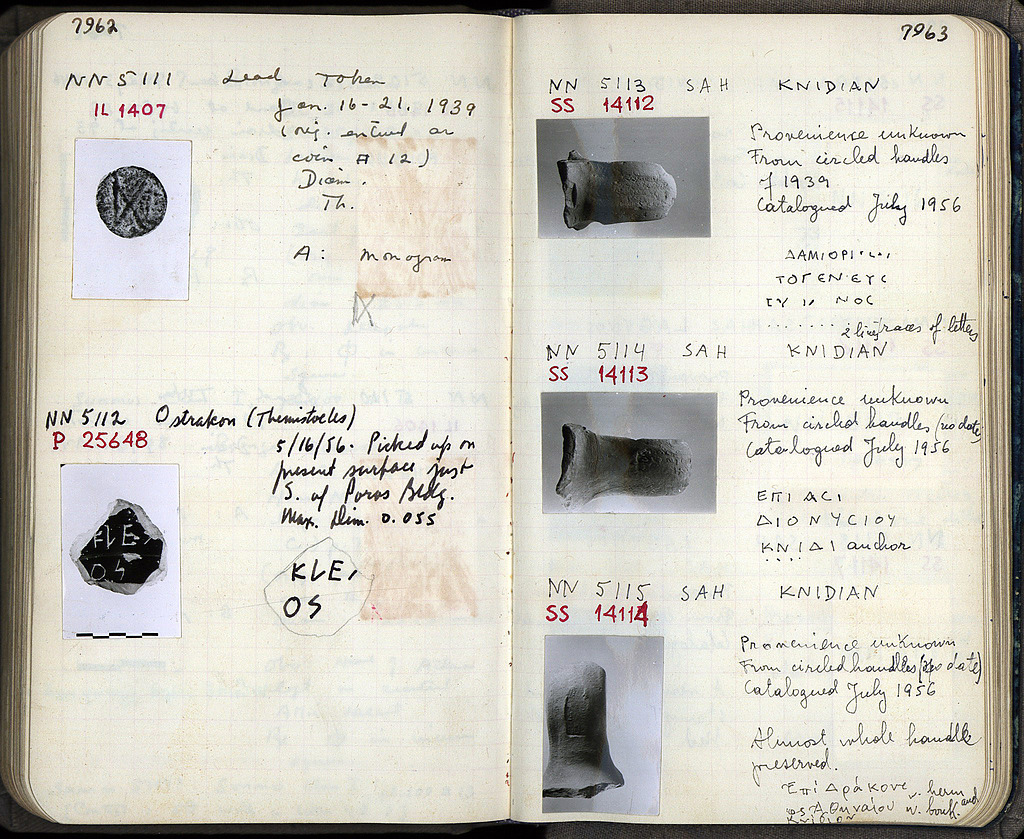 7962
NN 5111 Lead Token
IL 1407
Jan. 16-21, 1939
(orig. entered as
coin # 12)
Diam.
Th.
A: monogram
NN 5112 Ostrakon (Themistocles)
P 25648
5/16/56. Picked up on
present surface just
S. of Poros Bldg.
Max. Dim. 0.055
KLE
OS
KLE
OS
7963
NN 5113 SAH KNIDIAN
SS 14112
Provenience unknown
From circled handles
of 1939
Catalogued July 1956
ΔΑΜΙΟΡΙ
ΤΟΓΕΝΕΥΣ
ΝΟΣ
........ 2 lines traces of letters
NN 5114 SAH KNIDIAN
SS 14113
Provenience unknown
From circled handles (no date)
Catalogued July 1956
ΕΠΙ ΑCΙ
ΔΙΟΝΥCΙΟΥ
ΚΝΙΔΙ anchor
NN 5115 SAH KNIDIAN
SS 14114
Provenience unknown
From circled handles (no date)
Catalogued July 1956
Almost whole handle
preserved.
Ἐπὶ Δράκοντ herm and
ος Ἀθηναίου w. bouk.
Κνίδιον